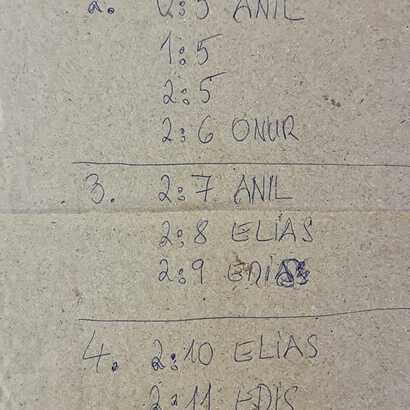 2. 0:5 ANIL
1:5
2:5
2:6 ONUR
3. 2:7 ANIL
2:8 ELİAS
2:9
4. 2:10 ELİAS
2:11 EDİS